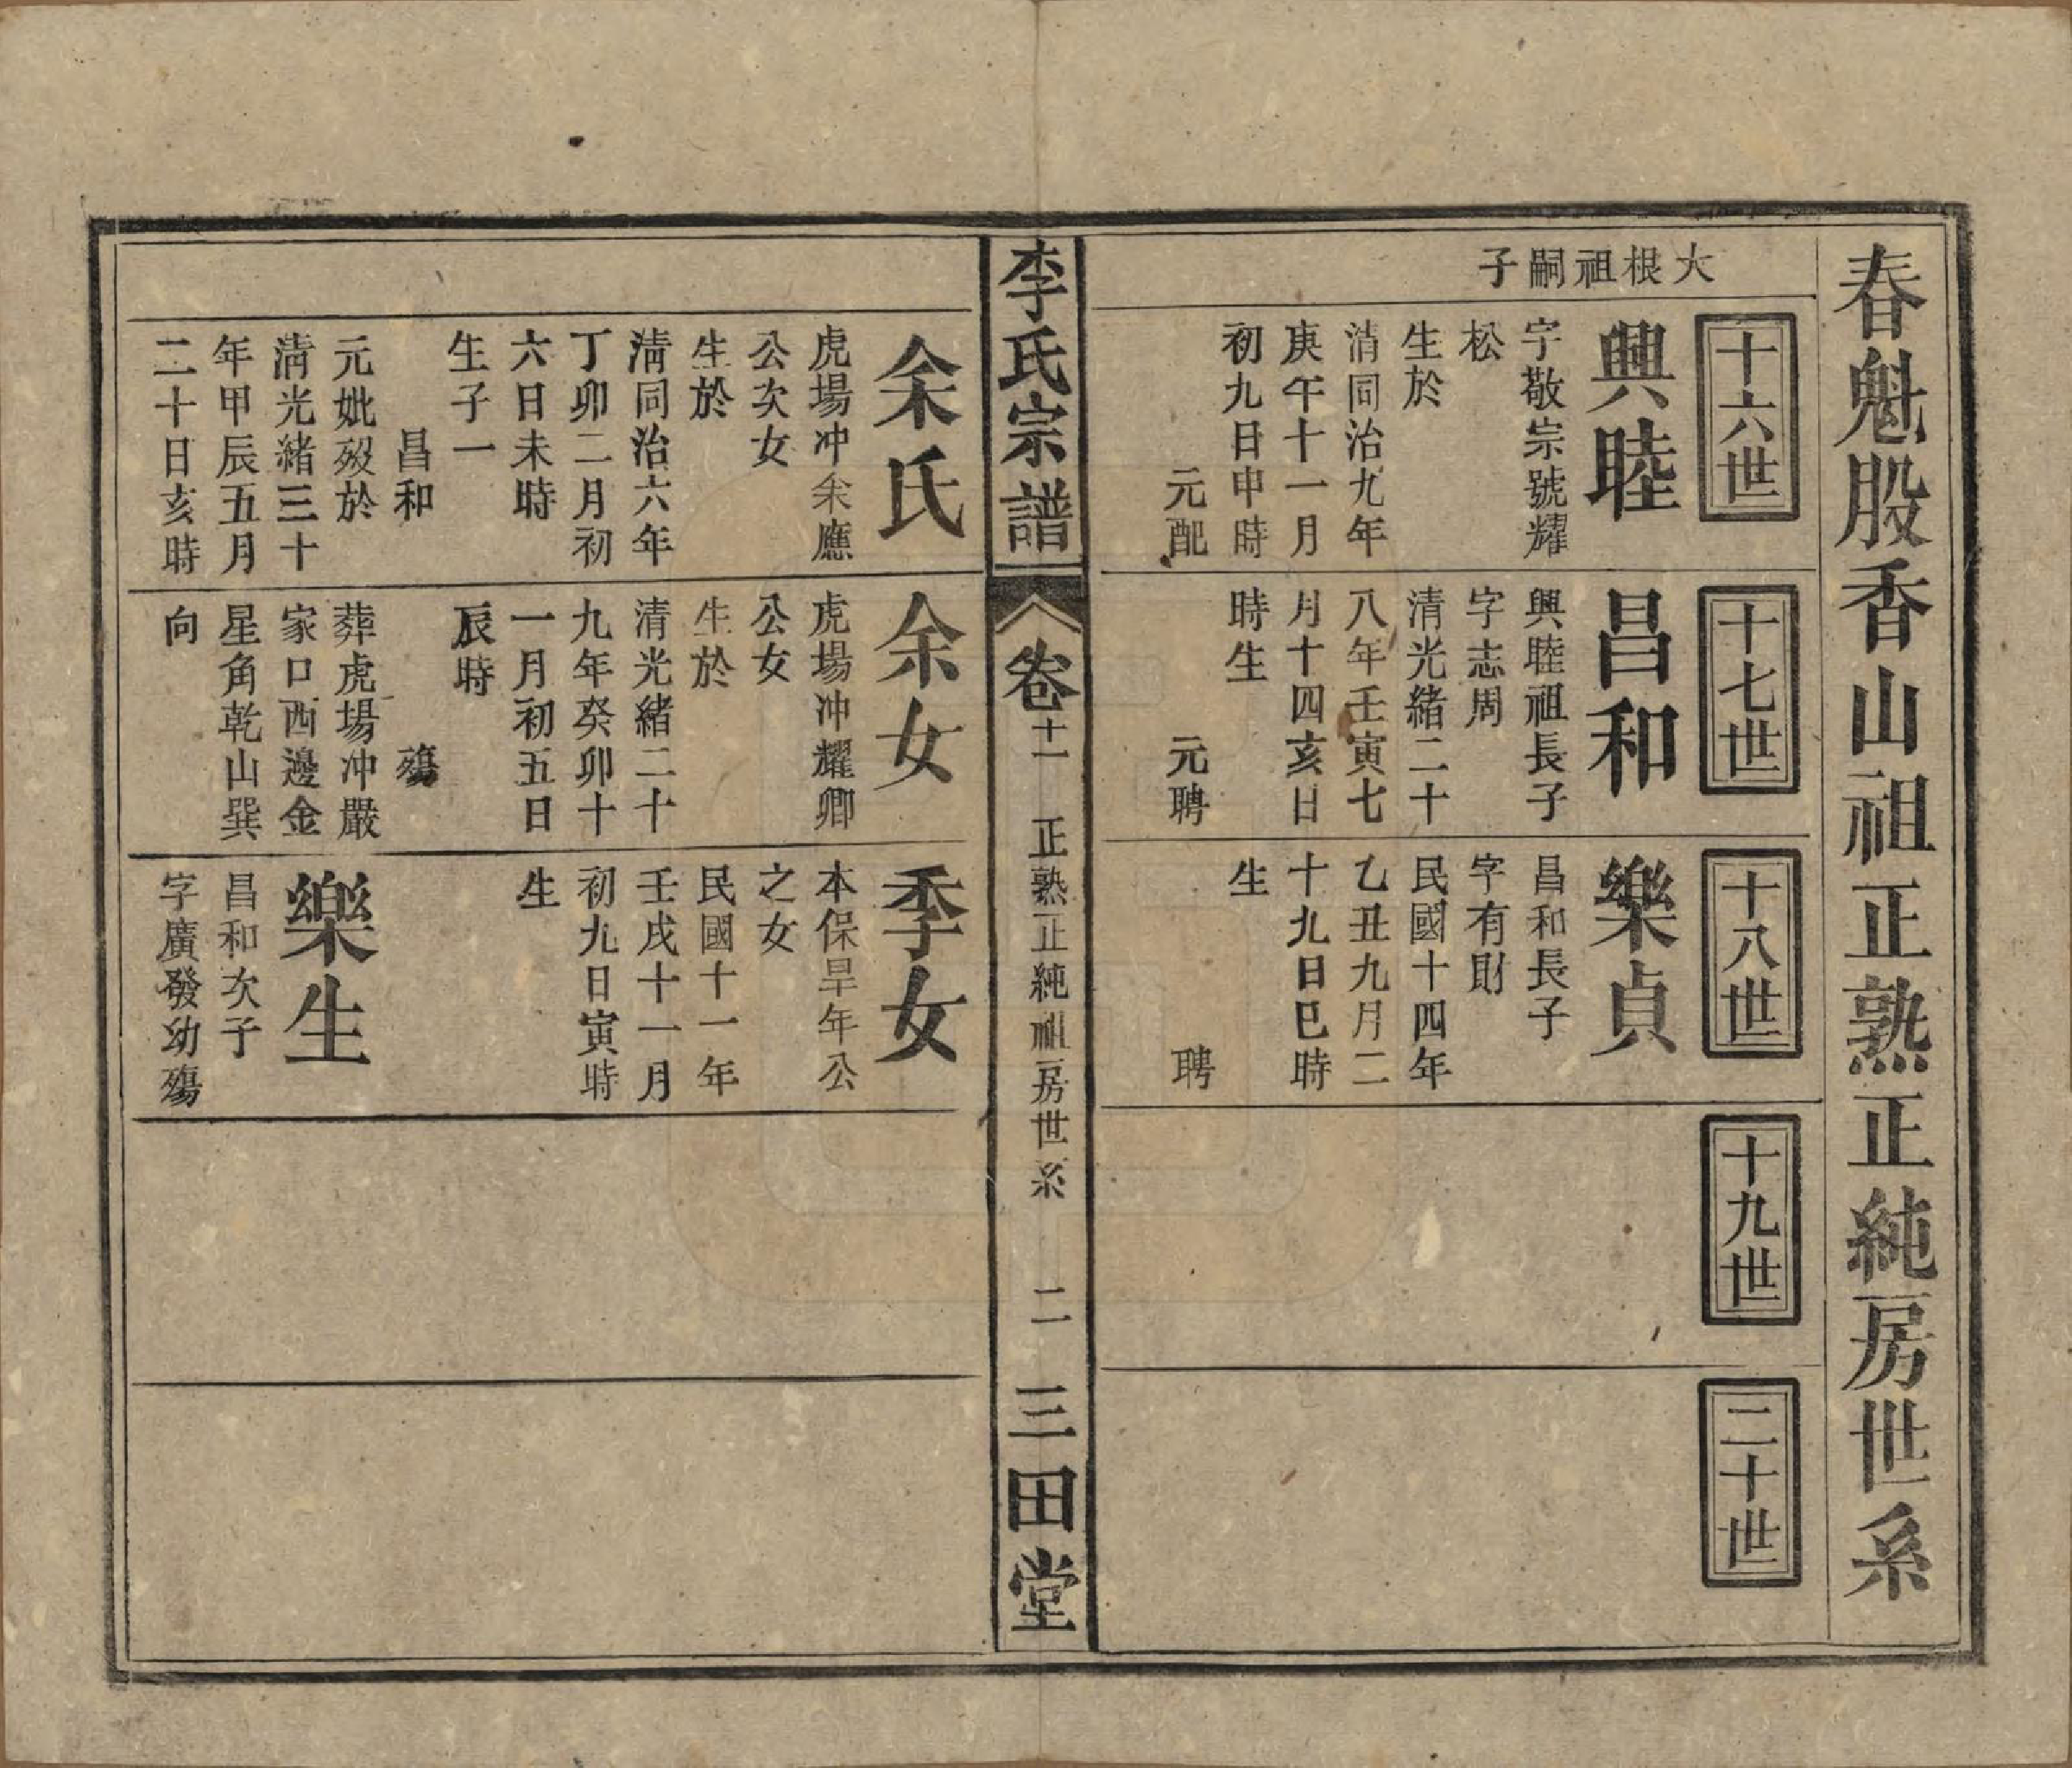 春魁股香山祖正熟正純房世系
大根祖嗣子
十六世
興睦
字敬宗號耀
松
生於
清同治九年
庚午十一月
初九日申時
元配
十七世
昌和
興睦祖長子
字志周
清光緒二十
八年壬寅七
月十四亥日
時生
元聘
十八世
樂貞
昌和長子
字有財
民國十四年
乙丑九月二
十九日巳時
生
聘
十九世
二十世
李氏宗譜
卷十一
正熟正純祖房世系
二
三田堂
余氏
虎場冲余應
公次女
生於
清同治六年
丁卯二月初
六日未時
生子一
昌和
元妣歿於
清光緒三十
年甲辰五月
二十日亥時
余女
虎場冲耀卿
公女
生於
清光緒二十
九年癸卯十
一月初五日
辰時
殤
葬虎場冲嚴
家口西邊金
星角乾山巽
向
季女
本保旱年公
之女
民國十一年
壬戌十一月
初九日寅時
生
樂生
昌和次子
字廣發幼殤